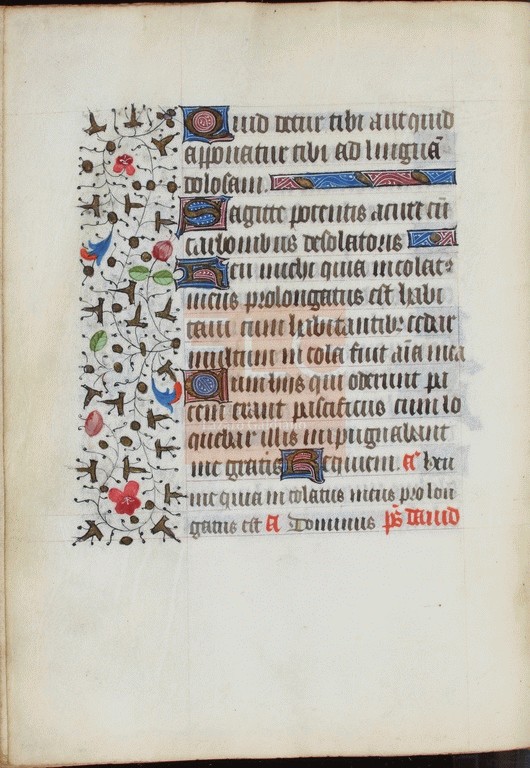 Quid detur tibi aut quid
apponatur tibi ad linguā
dolosam.
Sagitte potentis acute cū
carbonibus desolatoris
Heu michi quia incolatꝰ
meus prolongatus est habi
taui cum habitantibꝫ cedar
multum incola fuit aīa mea
Cum hiis qui oderunt pa
cem eram pacificus cum lo
quebar illis inpugnabant
me gratis Requiem. a᷒ heu
me quia incolatus meus prolon
gatus est a Dominus p̄s dauid